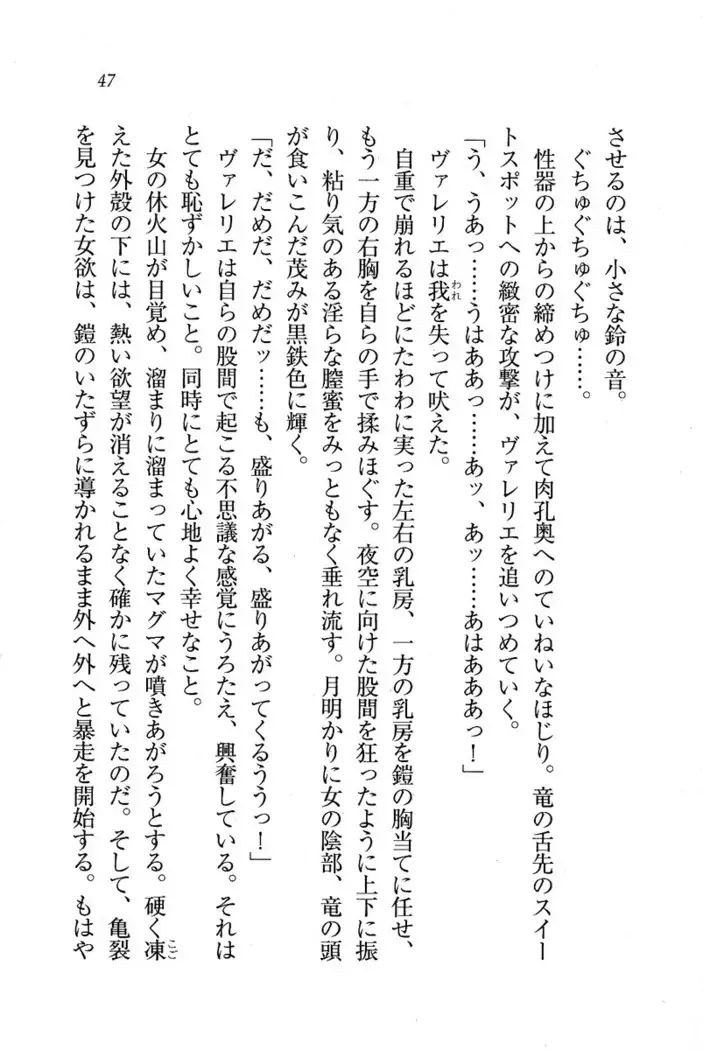 47
させるのは、小さな鈴の音。
ぐちゅぐちゅぐちゅ……。
性器の上からの締めつけに加えて肉孔奥へのていねいなほじり。竜の舌先のスイー
トスポットへの緻密な攻撃が、ヴァレリエを追いつめていく。
「う、うあっ……うはああっ……あッ、あッ……あはあああっ！」
ヴァレリエは我われを失って吠えた。
自重で崩れるほどにたわわに実った左右の乳房、一方の乳房を鎧の胸当てに任せ、
もう一方の右胸を自らの手で揉みほぐす。夜空に向けた股間を狂ったように上下に振
り、粘り気のある淫らな膣蜜をみっともなく垂れ流す。月明かりに女の陰部、竜の頭
が食いこんだ茂みが黒鉄色に輝く。
「だ、だめだ、だめだッ……も、盛りあがる、盛りあがってくるううっ！」
ヴァレリエは自らの股間で起こる不思議な感覚にうろたえ、興奮している。それは
とても恥ずかしいこと。同時にとても心地よく幸せなこと。
女の休火山が目覚め、溜まりに溜まっていたマグマが噴きあがろうとする。硬く凍こご
えた外殻の下には、熱い欲望が消えることなく確かに残っていたのだ。そして、亀裂
を見つけた女欲は、鎧のいたずらに導かれるまま外へ外へと暴走を開始する。もはや